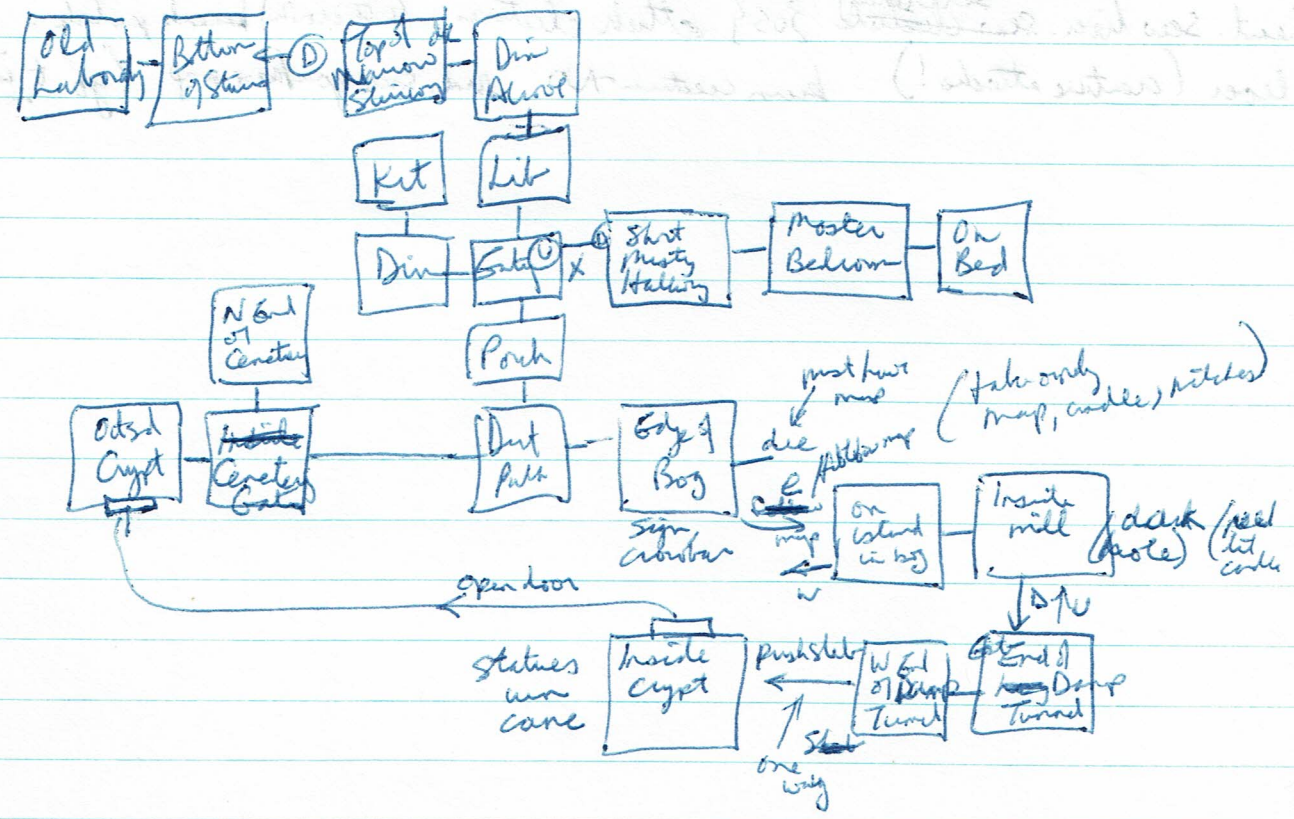 Old
Laboratory
Bottom
of Stairs
D
Top of dk
Narrow
Staircase
Dim
Alcove
Kit
Lib
Din
Entry
U
X
D
Short
Musty
Hallway
Master
Bedroom
On
Bed
N End
of
Cemetery
Porch
Outsd
Crypt
Cemetery
Gate
Dirt
Path
Edge of
Bog
sign
crowbar
must have
map
die
(take only
map, candle, matches)
e
follow map
map
W
on
island
in bog
Inside
mill
(dark
hole)
(need
lit
candle
D
U
open door
statues
urn
cane
Inside
Crypt
push slab
one
way
W End
of Damp
Tunnel
End of
Damp
Tunnel